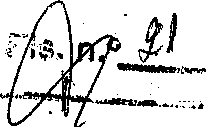 Fls. n.º 21